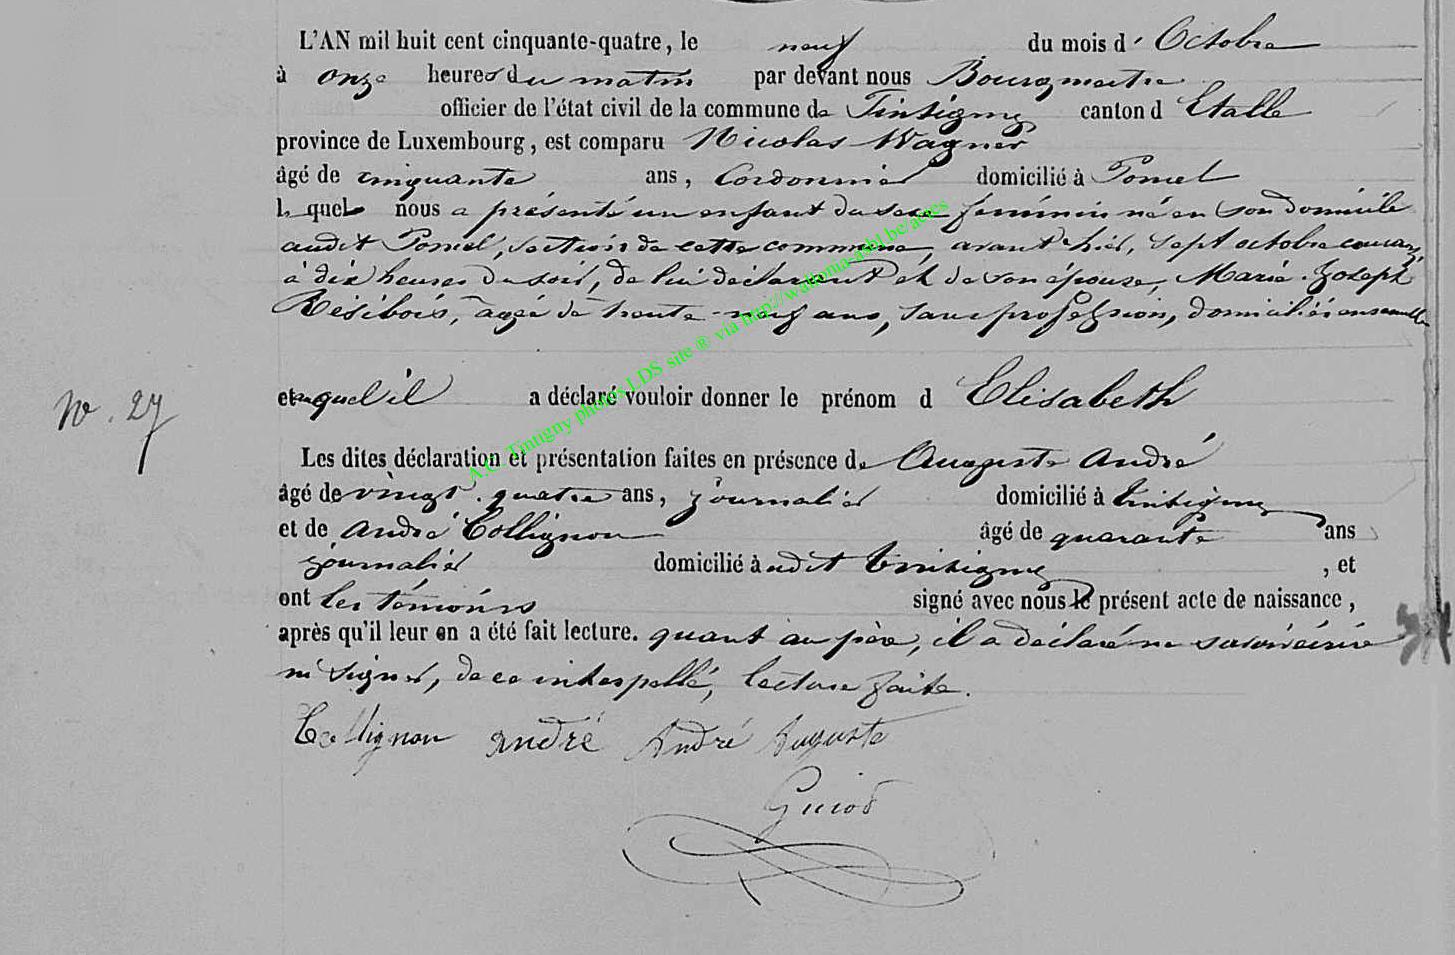 L'AN mil huit cent cinquante-quatre, le neuf du mois d' Octobre
à onze heures du matin par devant nous Bourgmestre
officier de l'état civil de la commune de Tintigny canton d Etalle
province de Luxembourg, est comparu Nicolas Wagner
âgé de cinquante ans, Cordonnier domicilié à Poncel
lequel nous a présenté un enfant du sexe féminin né en son domicile
audit Poncel, section de cette commune, avant hier, sept octobre courant,
à dix heures du soir, de lui déclarant et de son épouse, Marie-Joseph
Résibois, agée de trente-neuf ans, sans profession, domiciliés ensemble
N. 27
et auquel il a déclaré vouloir donner le prénom d Elisabeth
Les dites déclaration et présentation faites en présence de Auguste André
âgé de vingt-quatre ans, journalier domicilié à Tintigny
et de André Collignon âgé de quarante ans
journalier domicilié à udit Tintigny, et
ont les témoins signé avec nous le présent acte de naissance,
après qu'il leur en a été fait lecture. quant au père, il a déclaré ne savoir écrire
ni signer, de ce interpellé, lecture faite.
Collignon andré André Auguste
Guiot
A.C. Tintigny photos LDS site ® via http://wallonia-asbl.be/actes